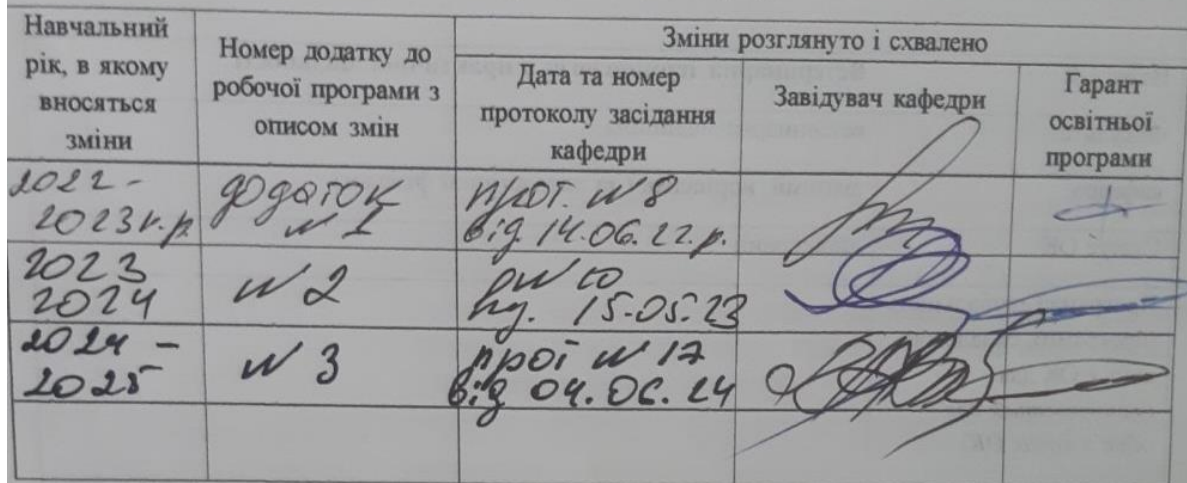 Навчальний
рік, в якому
вносяться
зміни
Номер додатку до
робочої програми з
описом змін
Зміни розглянуто і схвалено
Дата та номер
протоколу засідання
кафедри
Завідувач кафедри
Гарант
освітньої
програми
2022 -
2023 н.р.
додаток
№ 1
прот. № 8
від 14.06.22.р.
2023
2024
№ 2
№ 10
15.05.23
2024 -
2025
№ 3
прот № 17
від 04.06.24